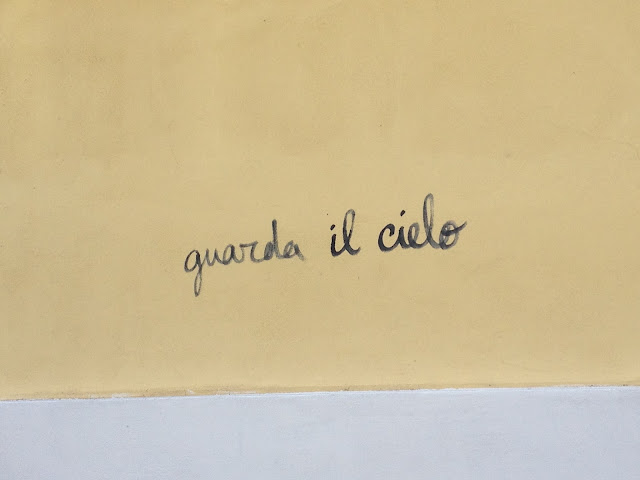 guarda il cielo